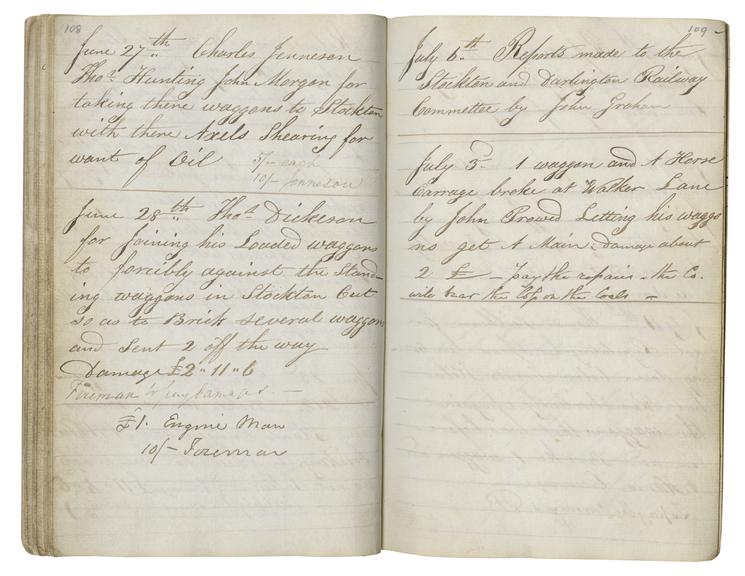 108
June 27th Charles Jenneson
Thos. Hunting John Morgan for
taking there waggons to Stockton
with there Axels Shearing for
want of Oil 5/- each
10/- Jenneson
June 28th Thos. Dickeson
for Joining his Loaded waggons
to forcibly against the Stand-
ing waggons in Stockton Cut
so as to Brick several waggons
and sent 2 off the way
Damage £2 " 11 " 6
Foreman Damages. —
£1. Engine Man
10/- Foreman
109
July 6th Reports made to the
Stockton and Darlington Railway
Committee by John Graham
July 3d 1 waggon and A Horse
Carrage broke at Walker Lane
by John Prowed Letting his waggo
ns get A Main. Damage about
2 £ — pay the repairs — the Co.
will bear the loss on the Coals —